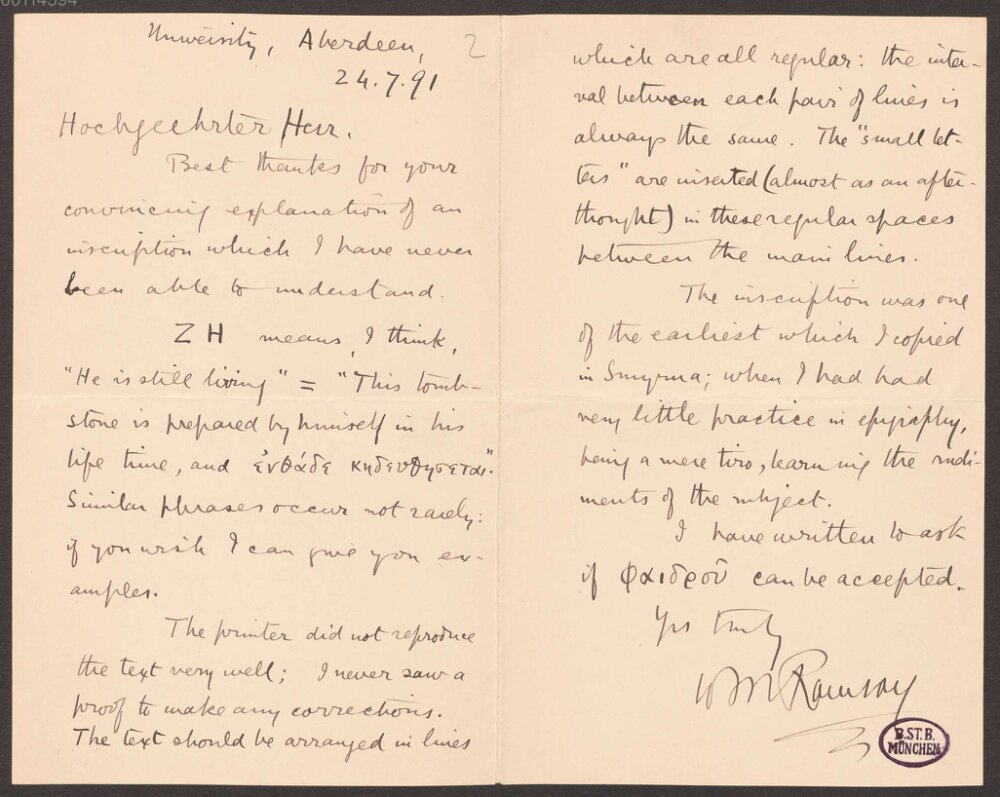 00114594
University, Aberdeen,
2
24.7.91
Hochgeehrter Herr.
Best thanks for your
convincing explanation of an
inscription which I have never
been able to understand.
ZH means, I think,
"He is still living" = "This tomb-
stone is prepared by himself in his
life time, and ἐνθάδε κηδευθησεται".
Similar phrases occur not rarely:
if you wish I can give you ex-
amples.
The printer did not reproduce
the text very well; I never saw a
proof to make any corrections.
The text should be arranged in lines
which are all regular: the inter-
val between each pair of lines is
always the same. The "small let-
ters" are inserted (almost as an after-
thought) in these regular spaces
between the main lines.
The inscription was one
of the earliest which I copied
in Smyrna; when I had had
very little practice in epigraphy,
being a mere tiro, learning the rudi-
ments of the subject.
I have written to ask
if Φαιδροῦ can be accepted.
Yrs truly
W M Ramsay
B.ST.B.
MÜNCHEN